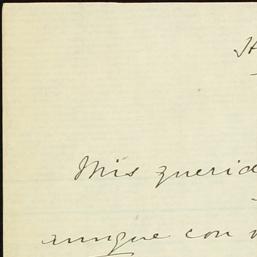 Mis querid
aunque con